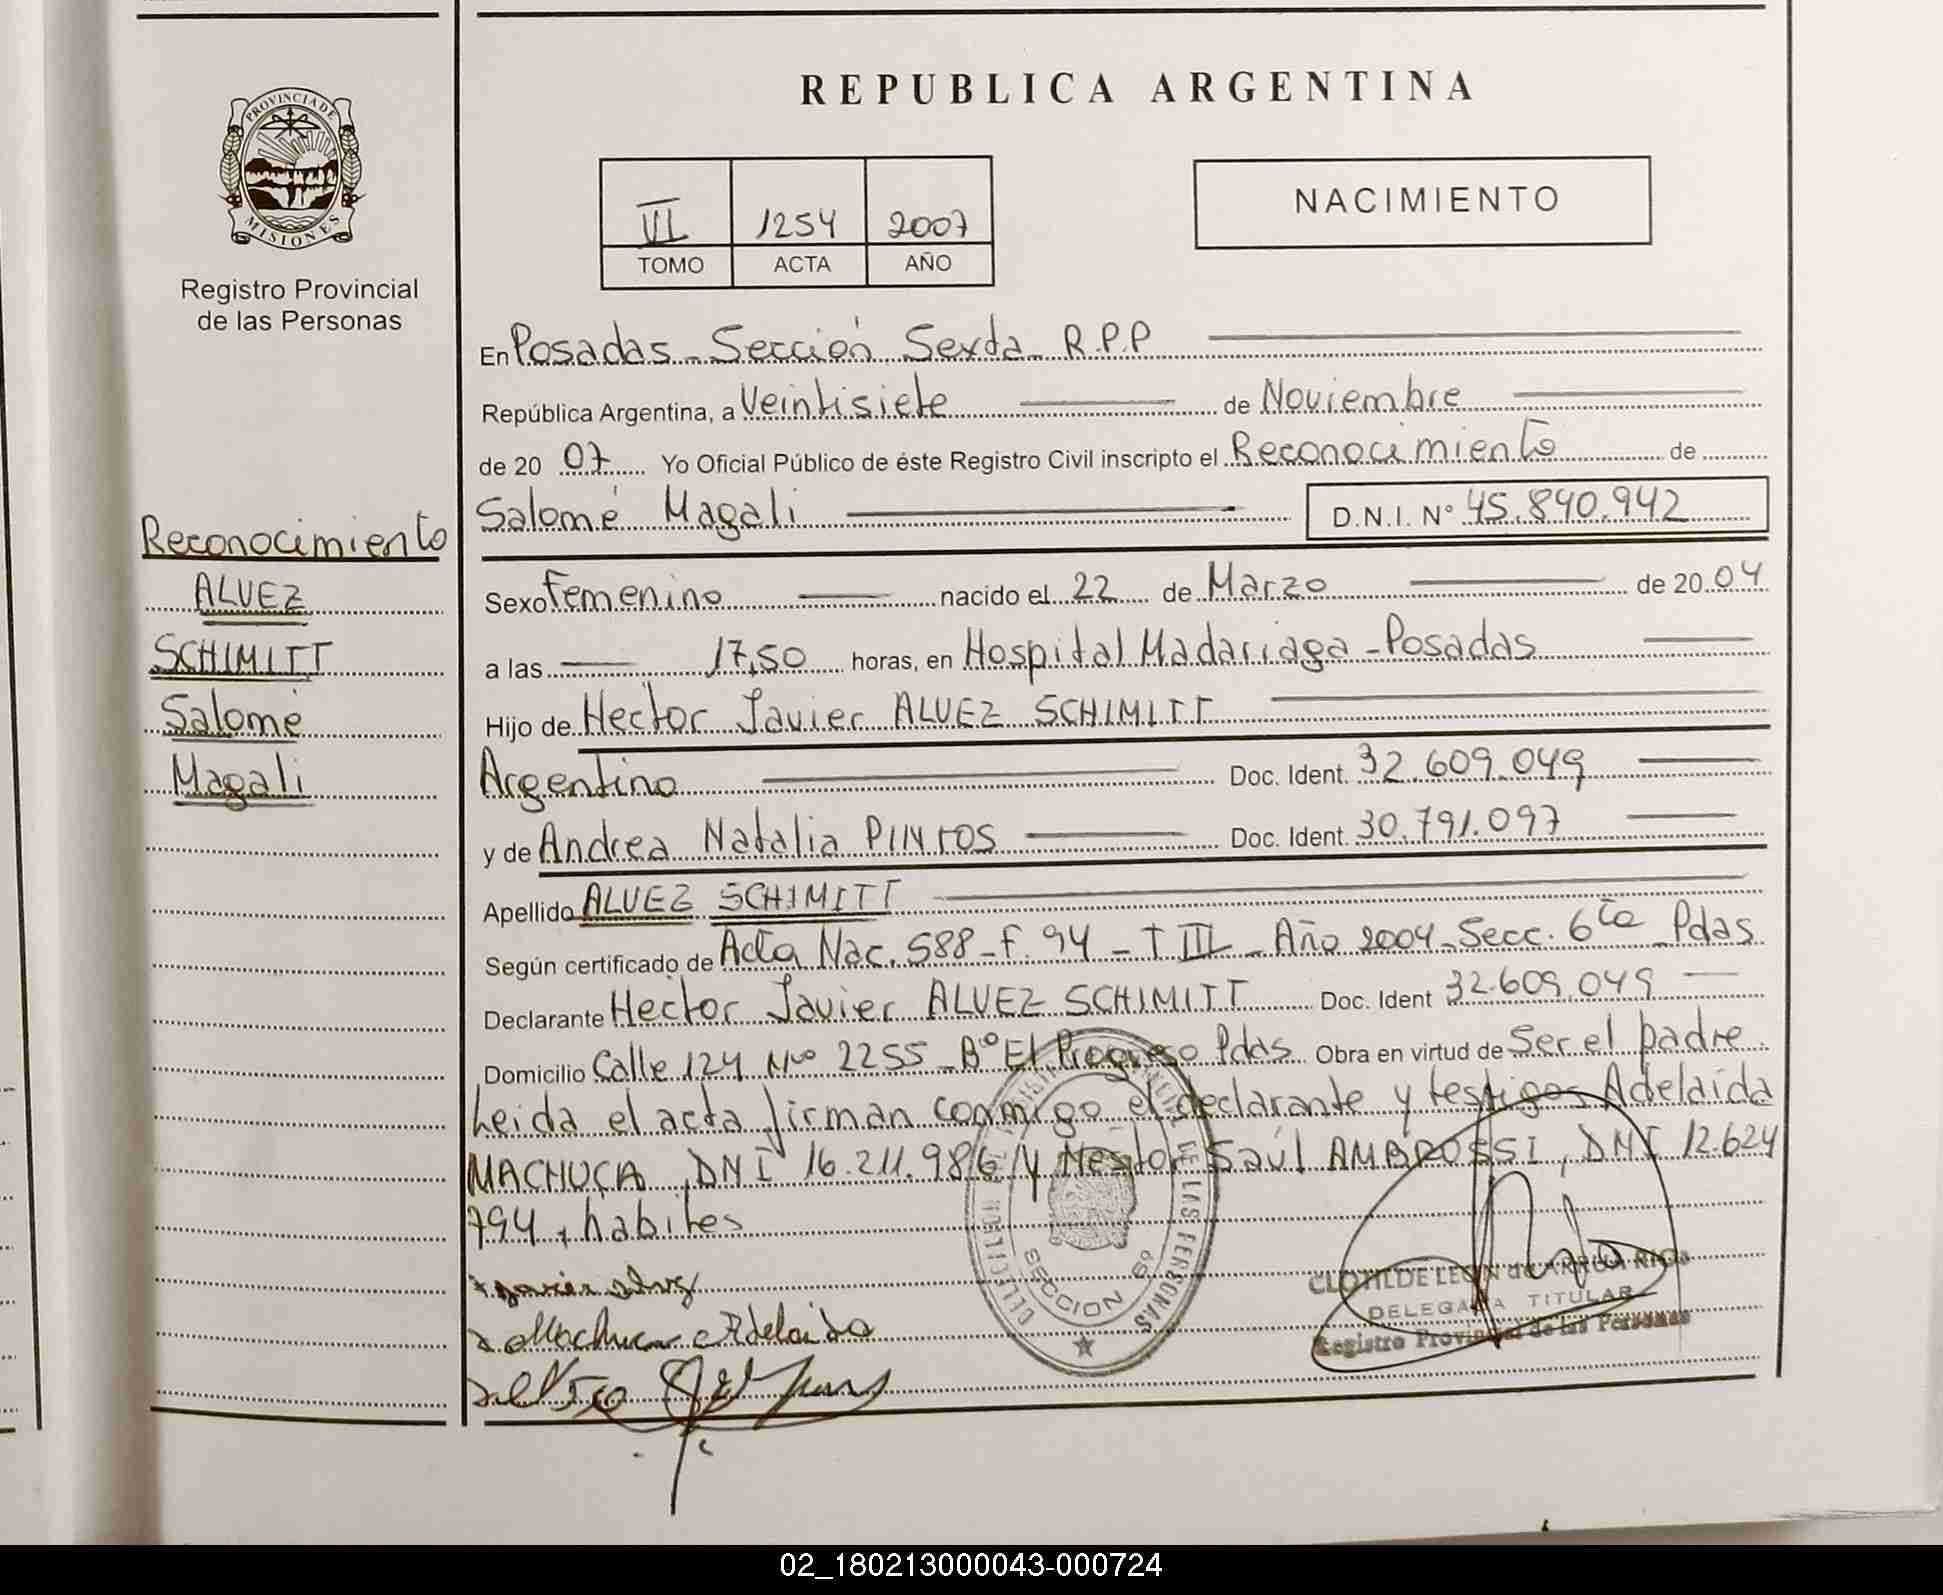 REPUBLICA ARGENTINA
PROVINCIA DE
MISIONES
Registro Provincial
de las Personas
VI 1254 2007
TOMO ACTA AÑO
NACIMIENTO
En Posadas - Sección Sexta R.P.P
República Argentina, a Veintisiete de Noviembre
de 20 07 Yo Oficial Público de éste Registro Civil inscripto el Reconocimiento de
Salomé Magali D.N.I. N° 45.840.942
Reconocimiento
ALVEZ
SCHIMITT
Salomé
Magali
Sexo Femenino nacido el 22 de Marzo de 20 04
a las 17,50 horas, en Hospital Madariaga - Posadas
Hijo de Hector Javier ALVEZ SCHIMITT
Argentino Doc. Ident. 32.609.049
y de Andrea Natalia PINTOS Doc. Ident. 30.791.097
Apellido ALVEZ SCHIMITT
Según certificado de Acta Nac. 588 - F. 94 - T III - Año 2004 - Secc. 6ta Pdas
Declarante Hector Javier ALVEZ SCHIMITT Doc. Ident 32.609.049
Domicilio Calle 124 Nº 2255 - B° El Progreso Pdas Obra en virtud de Ser el padre.
Leida el acta firman conmigo el declarante y testigos Adelaida
MACHUCA, DNI 16.211.986 y Nestor Saúl AMBROSSI, DNI 12.624
794, habiles
Machuca Adelaida
SECCION 6º
DE LAS PERSONAS
CLOTILDE LEON de
DELEGADA TITULAR
Registro Provincial de las Personas
02_180213000043-000724